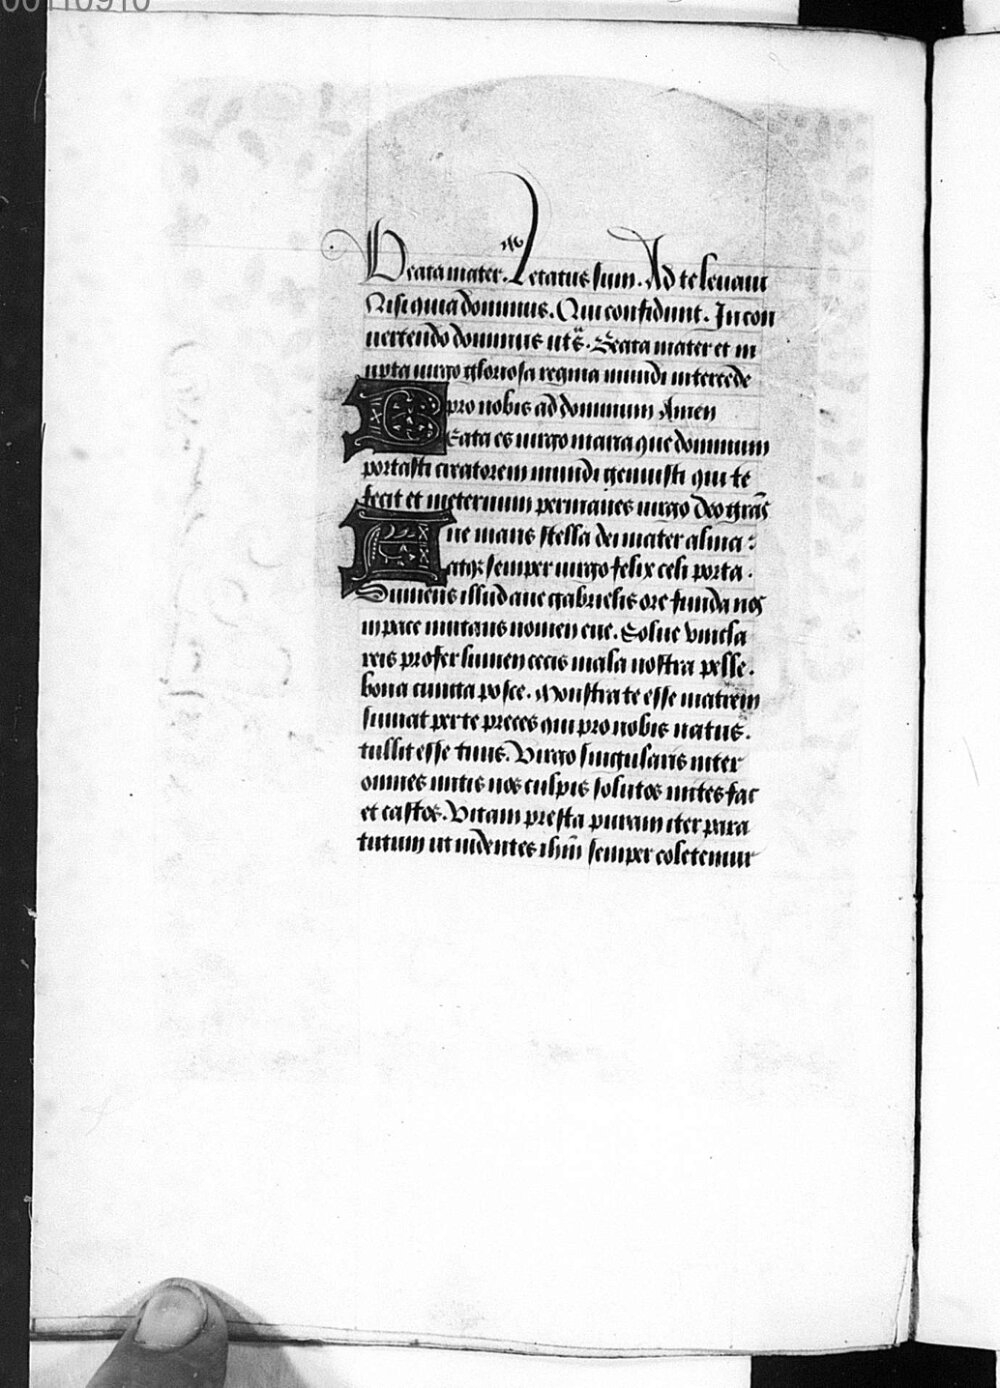 00110910
Beata mater. Letatus sum. Ad te levavi
Nisi quia dominus. Qui confidunt. In con
vertendo dominus uts. Beata mater et in
nupta virgo gloriosa regina mundi intercede
pro nobis ad dominum Amen
Beata es virgo maria que dominum
portasti creatorem mundi genuisti qui te
fecit et ineternum permanes virgo deo gras
Ave maris stella dei mater alma:
atqz semper virgo felix celi porta.
Sumens illud ave gabrielis ore funda nos
in pace mutans nomen eve. Solve vincla
reis profer lumen cecis mala nostra pelle.
bona cuncta posce. Monstra te esse matrem
sumat per te preces qui pro nobis natus.
tullit esse tuus. Virgo singularis inter
omnes mitis nos culpis solutos mites fac
et castos. Vitam presta puram iter para
tutum ut videntes ihm semper coletemur